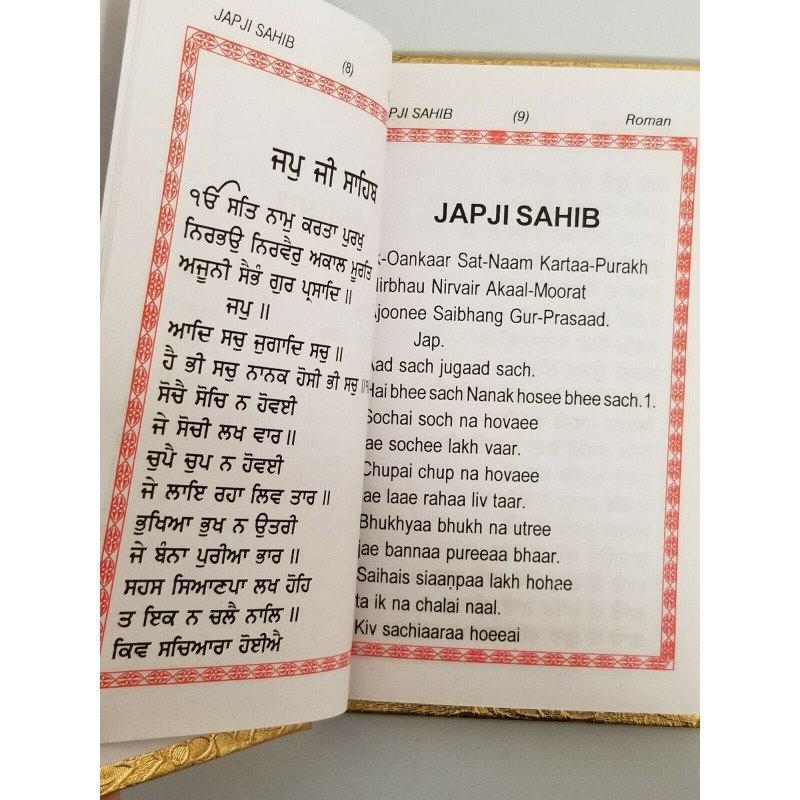 JAPJI SAHIB (8)
ਜਪੁ ਜੀ ਸਾਹਿਬ
ੴ ਸਤਿ ਨਾਮੁ ਕਰਤਾ ਪੁਰਖੁ
ਨਿਰਭਉ ਨਿਰਵੈਰੁ ਅਕਾਲ ਮੂਰਤਿ
ਅਜੂਨੀ ਸੈਭੰ ਗੁਰ ਪ੍ਰਸਾਦਿ ॥
ਜਪੁ ॥
ਆਦਿ ਸਚੁ ਜੁਗਾਦਿ ਸਚੁ ॥
ਹੈ ਭੀ ਸਚੁ ਨਾਨਕ ਹੋਸੀ ਭੀ ਸਚੁ ॥੧
ਸੋਚੈ ਸੋਚਿ ਨ ਹੋਵਈ
ਜੇ ਸੋਚੀ ਲਖ ਵਾਰ ॥
ਚੁਪੈ ਚੁਪ ਨ ਹੋਵਈ
ਜੇ ਲਾਇ ਰਹਾ ਲਿਵ ਤਾਰ ॥
ਭੁਖਿਆ ਭੁਖ ਨ ਉਤਰੀ
ਜੇ ਬੰਨਾ ਪੁਰੀਆ ਭਾਰ ॥
ਸਹਸ ਸਿਆਣਪਾ ਲਖ ਹੋਹਿ
ਤ ਇਕ ਨ ਚਲੈ ਨਾਲਿ ॥
ਕਿਵ ਸਚਿਆਰਾ ਹੋਈਐ
PJI SAHIB (9) Roman
JAPJI SAHIB
-Oankaar Sat-Naam Kartaa-Purakh
irbhau Nirvair Akaal-Moorat
joonee Saibhang Gur-Prasaad.
Jap.
Aad sach jugaad sach.
Hai bhee sach Nanak hosee bhee sach.1.
Sochai soch na hovaee
ae sochee lakh vaar.
Chupai chup na hovaee
ae laae rahaa liv taar.
Bhukhyaa bhukh na utree
jae bannaa pureeaa bhaar.
Saihais siaaṇpaa lakh hohae
ta ik na chalai naal.
Kiv sachiaaraa hoeeai